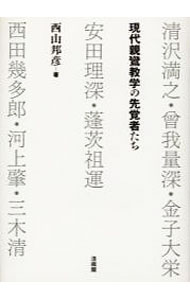 現代親鸞教学の先覚者たち
西山邦彦・著
清沢満之・曾我量深・金子大栄
安田理深・蓬茨祖運
西田幾多郎・河上肇・三木清
法藏館